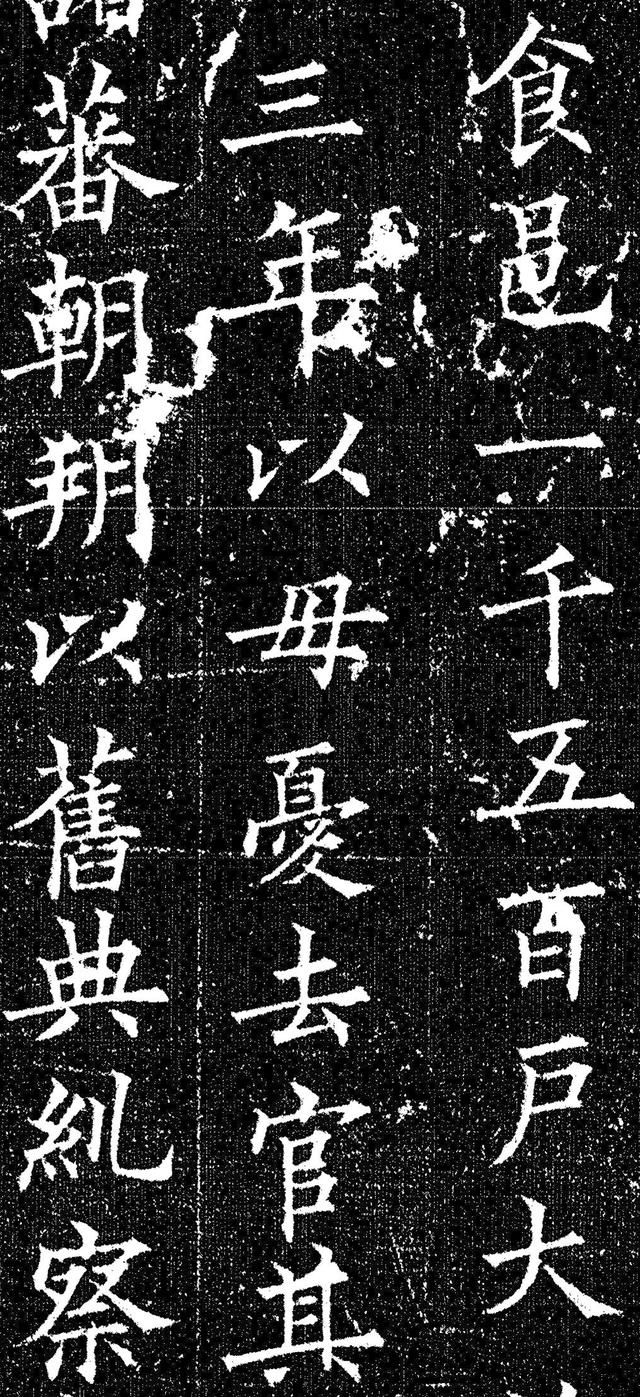 食邑一千五百戶大
三年以毋憂去官其
蕃朝朔以舊典糺察